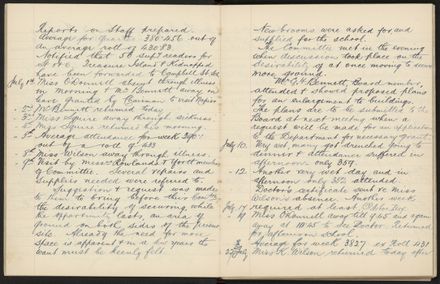 Reports on Staff prepared.
Average for year 380.456 out of
an average roll of 420.83
Notified that 58 supp'y readers for
Treasure Island & Kidnapped
have been forwarded to Campbell St. Sch.
July 1st Miss O'Donnell away through illness
in morning & Mr Bennett away on
leave granted by Chairman to visit Napier
2nd Mr Bennett returned today.
3rd Miss Squire away through sickness
Miss Squire returned this morning.
5th Average attendance for week
out of a roll of 433
8th Miss Wilson away through illness.
9th Visit by Messrs & Yorett members
of Committee. Several repairs and
supplies needed were referred to
Suggestion & request was made
to them to bring before their Com'tee
the desirability of securing while
the opportunity lasts, an area of
ground on both sides of the present
site. Already the need for more
space is apparent & in a few years the
want must be keenly felt.
New brooms were asked for and
supplied for the school
The Committee met in the evening
when discussion took place on the
desirability of at once moving to secure
more ground.
Mr G. H. Bennett, Board member
attended & showed proposed plans
for an enlargement to buildings.
The plans are to be submitted to the
Board at next meeting when a
request will be made for an application
to the Department for necessary grant.
July 10. Very wet, many got drenched going to
dinner & attendance suffered in
afternoon: only 359.
12. Another very wet day and in
afternoon only 372 attended.
Doctor's certificate sent re Miss
Wilson's absence. Another week
required at least.
July 17
Miss O'Donnell away till 9.45 and again
away at 10.45 to see Doctor. Returned
for afternoon school.
Average for week 382.7 ex Roll 431
Miss K. Wilson returned today after